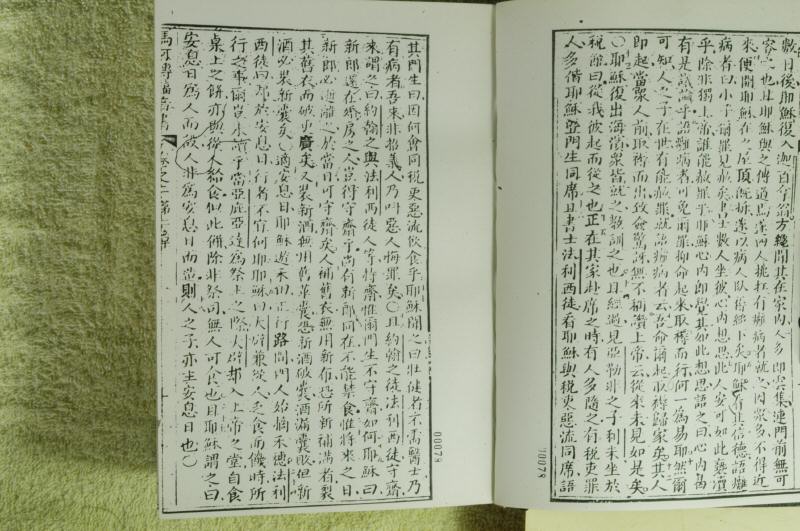 數日後耶穌復入加百
方纔聞其在家內人多即
集連門前無可
容之也且耶穌與之傳道焉
四人挑扛有癱病者就之因眾多不得近
來便開耶穌在之屋頂
以病人
下矣耶穌
其信德語癱
病者曰小子爾罪見赦矣
書士數人坐彼心內想思此人安可如此褻瀆
乎除非獨上帝誰能赦罪乎耶穌心內即覺其如此想思語之曰心內曷
有是議論乎語癱病者可免爾罪抑命起來取褥而行何一為易耶然爾
可知人之子在世有能赦罪就語癱病者云吾命爾起取褥歸家矣其人
即起當眾人前取褥而出致眾驚訝無不稱讚上帝云從來未見如是矣
〇耶穌復出海濱眾皆就之教訓之也且經過見亞勒非之子利未坐於
稅
曰從我彼起而從之也正在其家赴席之時有人多隨之有稅吏罪
人多偕耶穌暨門生同席且書士法利西徒看耶穌與稅吏惡流同席語
00078
其門生曰因何會同稅吏惡流飲食乎耶穌聞之曰壯健者不需醫士乃
有病者吾來非招義人乃叫惡人悔罪矣〇且約翰之徒法利西徒守齋
來謂之曰約翰之與法利西徒人等持齋惟爾門生不守齋如何耶穌曰
新郎還在婚房之人豈得守齋乎尚有新郎同在不能禁食惟將來之日
新郎必逝離之於當日可守齋矣人補舊衣無用新布恐所新補滿者裂
其舊衣而破更廣矣又裝新酒無用舊革囊恐新酒破囊酒漏囊敗但新
酒必裝新囊矣〇適安息日耶穌遊禾田正行路間門人始摘禾穗法利
西徒曰
於安息日行者不宜何耶耶穌曰大辟兼從人乏食而饑時所
行之事爾豈未讀乎當亞庇亞達為祭上之際大辟卻入上帝之堂自食
桌上之餅亦與從人給食似此餅除非祭司無人可食也且耶穌謂之曰
安息日為人而設人非為安息日而造則人之子亦主安息日也〇
馬可傳福音書
卷之二第二章
00078